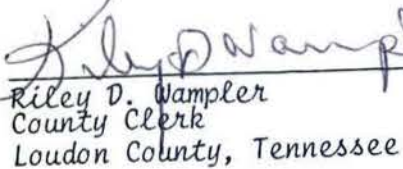 Riley D Wamp
Riley D. Wampler
County Clerk
Loudon County, Tennessee